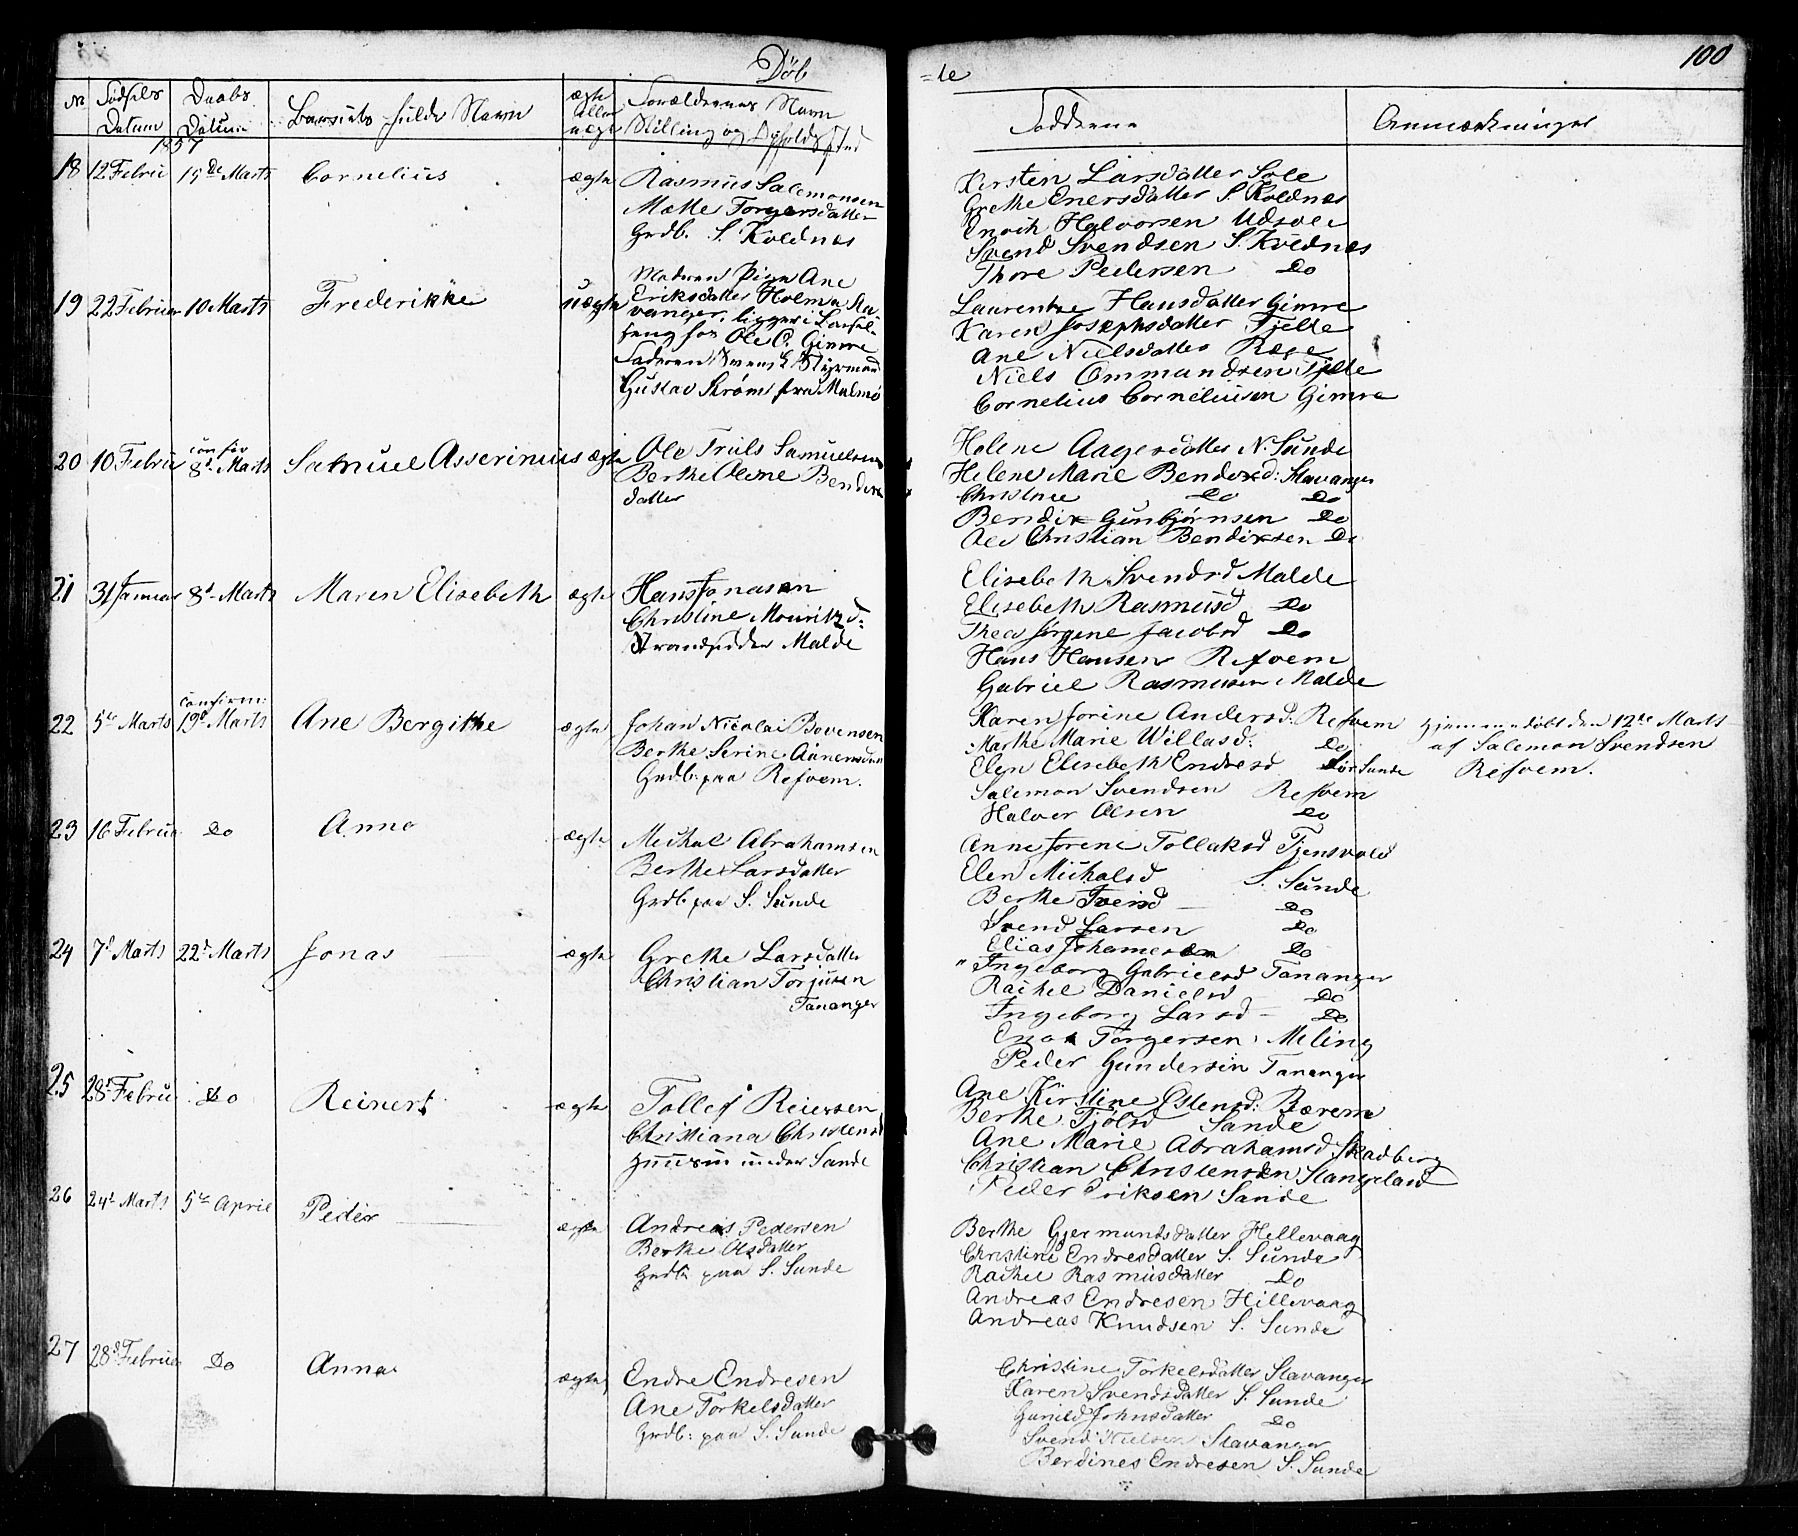 Døb
=te
100
No
Fødsels Datum
Daabs Datum
Barnets fulde Navn
ægte eller uægte
Forældrenes Navn
Stilling og Opholdssted
Fadderne
Anmærkninger
1857
18 12 Februar 15de Marts Cornelius ægte Rasmus Salemonsen
Mætte Torgersdatter
Grdb. S. Kvldnæs
Kirsten Larsdatter Sole
Grethe Enersdatter S. Kvldnæs
Enoch Halvorsen
Svend Svendsen S. Kvednæs
Thore Pedersen Do
19 22 Februar 10 Marts Frederikke uægte Moderen Pige Ane
Eriksdatter Holme Sta-
vanger, ligger i Barsel-
seng hos Ole O. Gimre
Faderen Svensk Styrmand
Gustav Strøm fra Malmø
Laurentze Hansdatter Gimre
Karen Josephsdatter Tjelte
Ane Nielsdatter Ræge
Niels Ommundsen Tjelte
Cornelius Corneliusen Gimre
20 10 Februar confir 8d Marts Samuel Asserinius ægte Ole Truls Samuelsen
Berthe Olene Bendix
datter
Helene Aagesdatter N. Sunde
Helene Marie Bendixd: Stavanger
Christine Do Do
Bendix Gunbjørnsen Do
Ole Christian Bendixsen Do
21 31 Januar 8d Marts Maren Elisebeth ægte Hans Jonasen
Christine Mouritzd:
Strandsidder Malde
Elisebeth Svendsd Malde
Elisebeth Rasmusd Do
Thea Jørgine Jacobsd Do
Hans Hansen Refvem
Gabriel Rasmusen Malde
22 5te Marts confirm: 19d Marts Ane Bergitte ægte Johan Nicolai Bovensen
Berthe Serine Aanensdatter
Grdb: paa Refvem.
Karen Jorine Andersd. Refvem
Marthe Marie Willasd: Do
Elen Elisebeth Endresd Sør Sunde
Salemon Svendsen Refvem
Halver Olsen Do
Hjemmedøbt den 12te Marts
af Salemon Svendsen
Refvem.
23 16 Februar Do Anna ægte Michal Abrahamsen
Berthe Larsdatter
Grdb: paa S. Sunde
Anne Jorine Tollaksd Tjensvold
Elen Michalsd S. Sunde
Berthe Do
Svend Larsen Do
Elias Johannesen Do
24 7d Marts 22d Marts Jonas ægte Grethe Larsdatter
Christian Torjusen
Tananger
Ingeborg Gabrielsd Tananger
Rachel Danielsd Do
Ingeborg Larsd Do
Enok Torgersen Meling
Peder Gundersen Tananger
25 28d Februar Do Reinert ægte Tollef Reiersen
Christiana Christensd
under Sande
Ane Kirstine Ostensd: Bærem
Berthe Tjølsd Sande
Ane Marie Abrahamsd Skadberg
Christian Christensen Stangeland
Peder Eriksen Sande
26 24d Marts 5te April Peder ægte Andreas Pedersen
Berthe Olsdatter
Grdb: paa S. Sunde
Berthe Gjermundsdatter Hellevaag
Christine Endresdatter S. Sunde
Rachel Rasmusdatter Do
Andreas Endresen Hillevaag
Andreas Knudsen S. Sunde
27 28d Februar Do Anna ægte Endre Endresen
Ane Torkelsdatter
Grdb: paa S. Sunde
Christine Torkelsdatter Stavanger
Karen Svendsdatter S. Sunde
Gunild Johnsdatter Do
Svend Nielsen Stavanger
Berdines Endresen S. Sunde